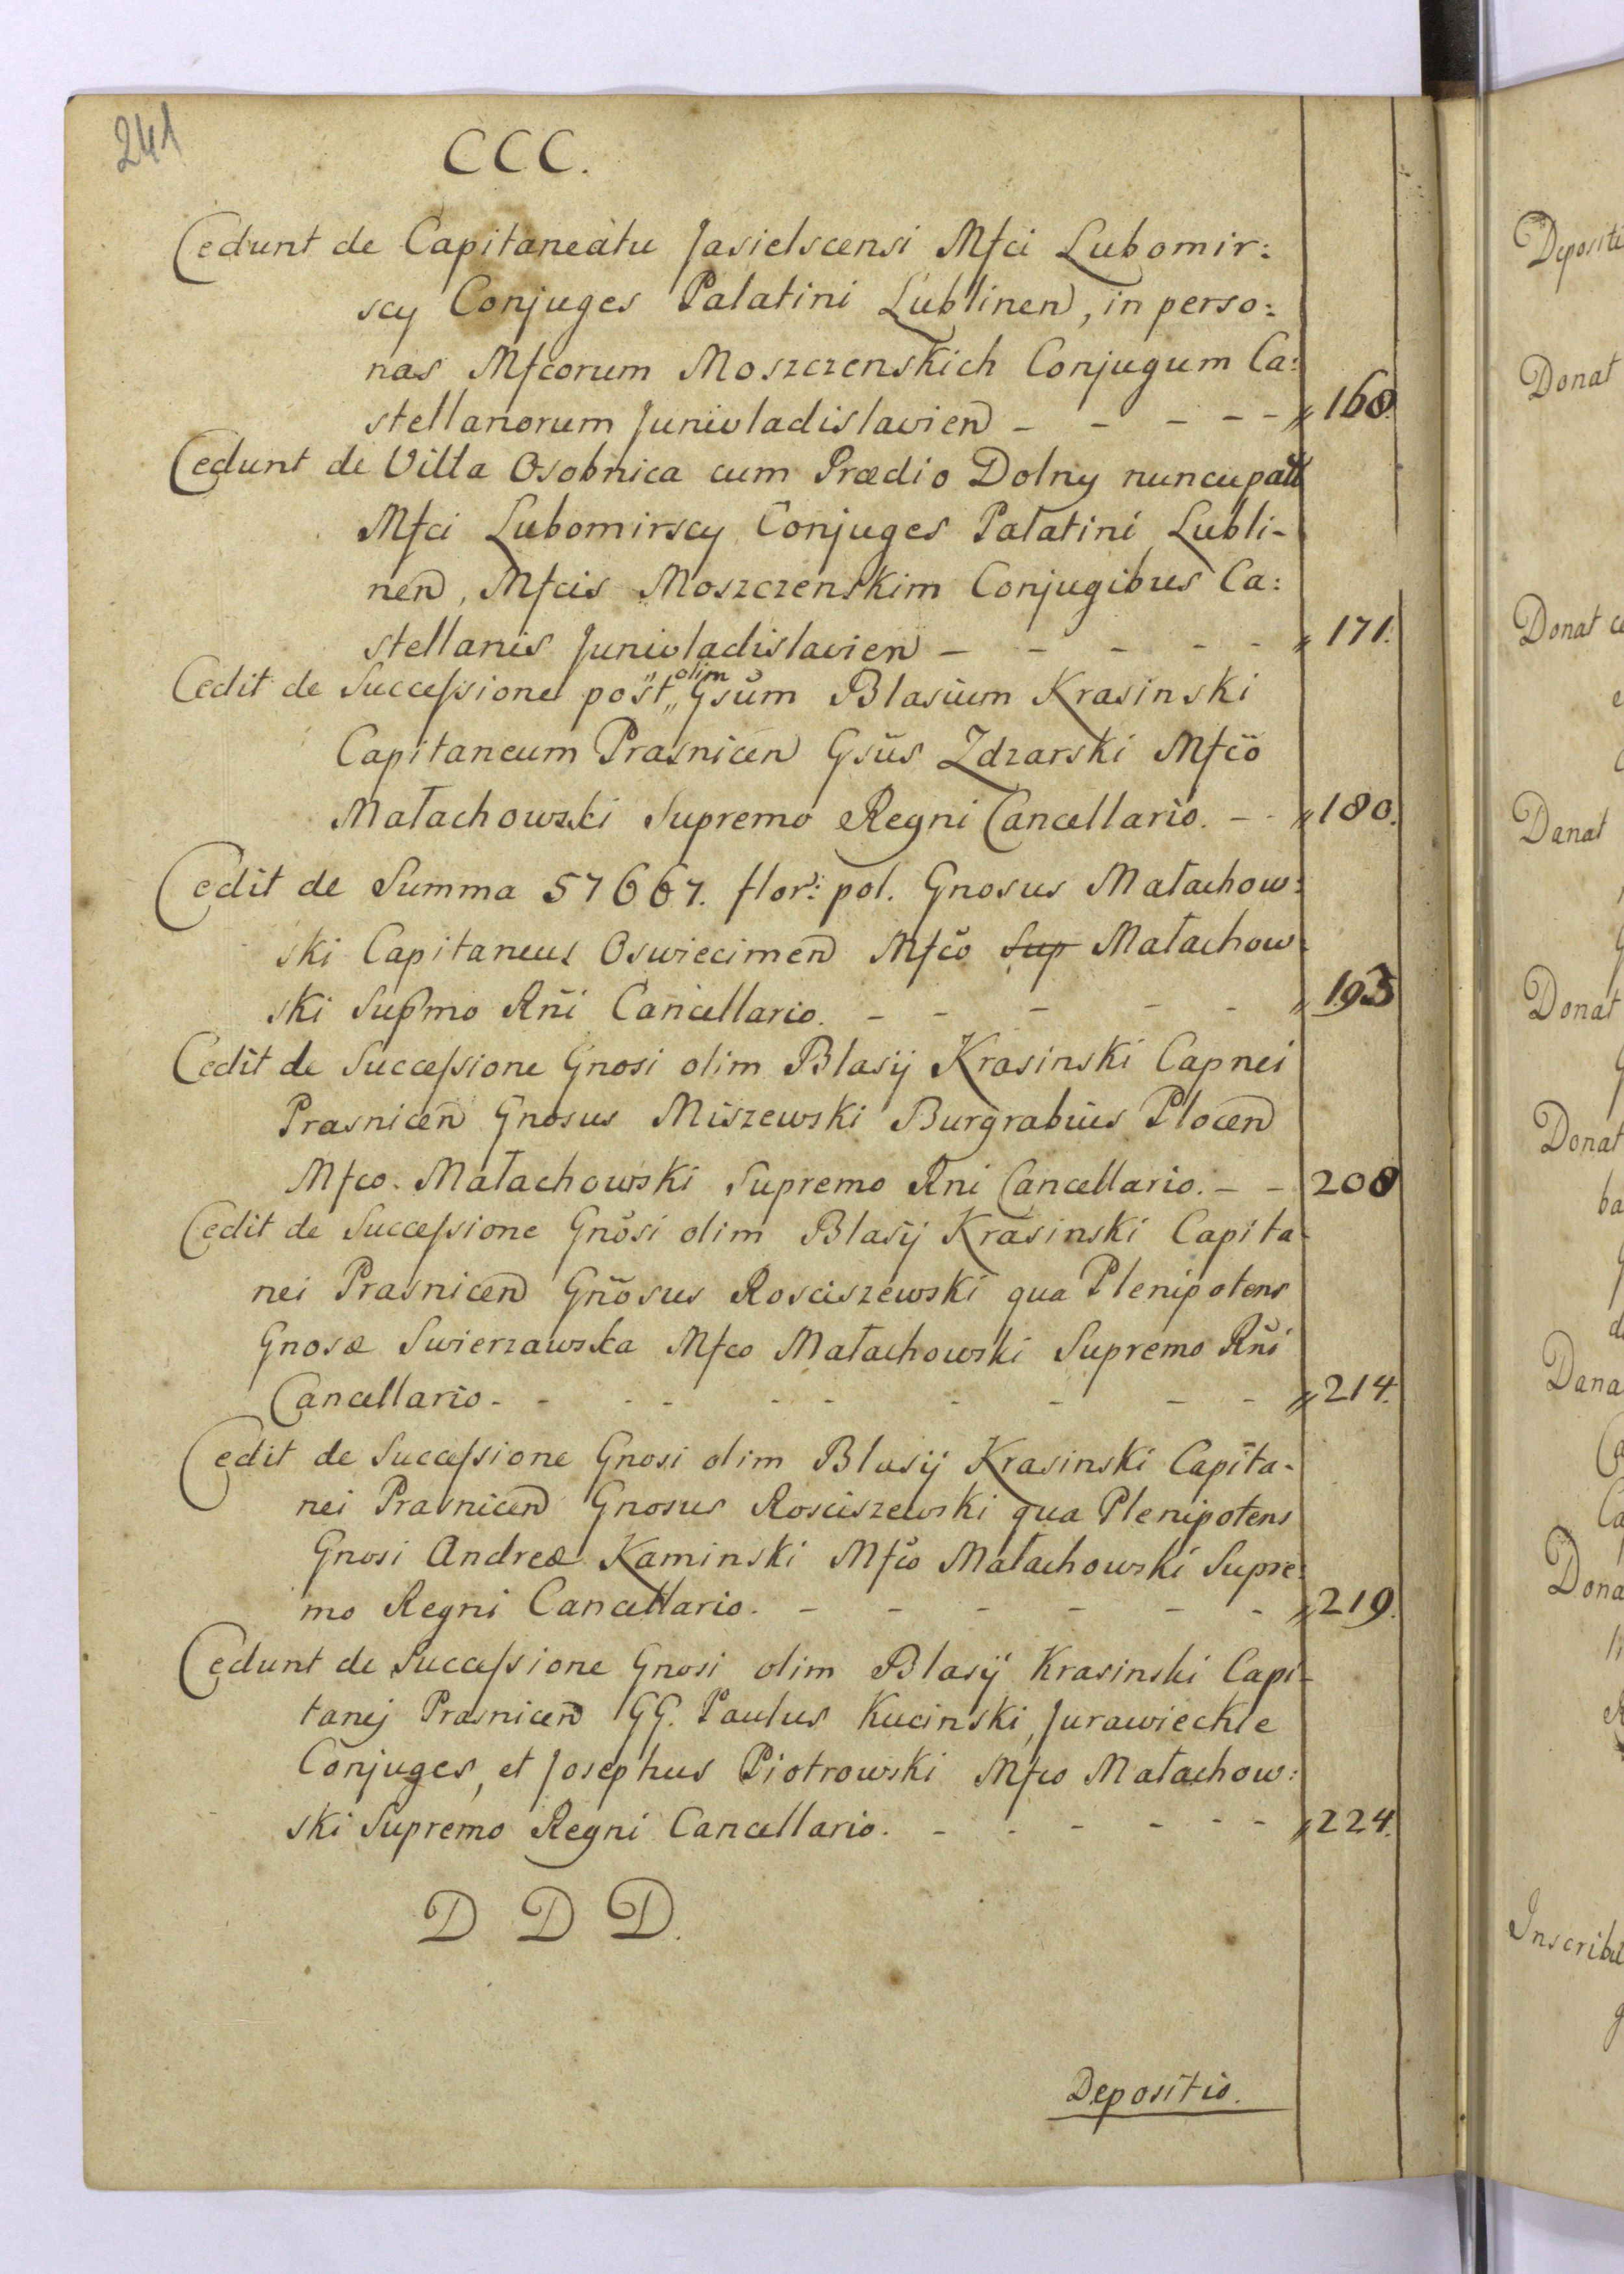 241
CCC.
Cedunt de Capitaneatu Jasielscensi Mfci Lubomir:
scy Conjuges Palatini Lublinen, in perso:
nas Mfcorum Moszczenskich Conjugum Ca:
stellanorum Junivladislavien - - - - - " 168.
Cedunt de Villa Osobnica cum Prædio Dolny nuncupati
Mfci Lubomirscy Conjuges Palatini Lubli-
nen, Mfcis Moszczenskim Conjugibus Ca:
stellanis Junivladislavien - - - - - " 171.
Cedit de Successione post „ olim Gsum Blasium Krasinski
Capitaneum Prasnicen Gsus Zdzarski Mfco
Małachowski Supremo Regni Cancellario. - - " 180.
Cedit de Summa 57667. flor: pol. Gnosus Małachow:
ski Capitaneus Oswiecimen Mfco Sup Małachow-
ski Supmo Rni Cancellario. - - - - - " 193
Cedit de Successione Gnosi olim Blasij Krasinski Capnei
Prasnicen Gnosus Miszewski Burgrabius Plocen
Mfco. Małachowski Supremo Rni Cancellario. - - 208
Cedit de Successione Gnosi olim Blasij Krasinski Capita-
nei Prasnicen Gnosus Rosciszewski qua Plenipotens
Gnosæ Swierzawska Mfco Małachowski Supremo Rni
Cancellario - - - - - - - - - - " 214.
Cedit de Successione Gnosi olim Blasij Krasinski Capita-
nei Prasnicen Gnosus Rosciszewski qua Plenipotens
Gnosi Andreæ Kaminski Mfco Małachowski Supre:
mo Regni Cancellario. - - - - - - " 219.
Cedunt de Successione Gnosi olim Blasij Krasinski Capi-
tanej Prasnicen GG. Paulus Kucinski, Jurawieckie
Conjuges, et Josephus Piotrowski Mfco Małachow:
ski Supremo Regni Cancellario. - - - - - - " 224.
D D D.
Depositio.
Donat
Donat
Danat
Donat
Donat